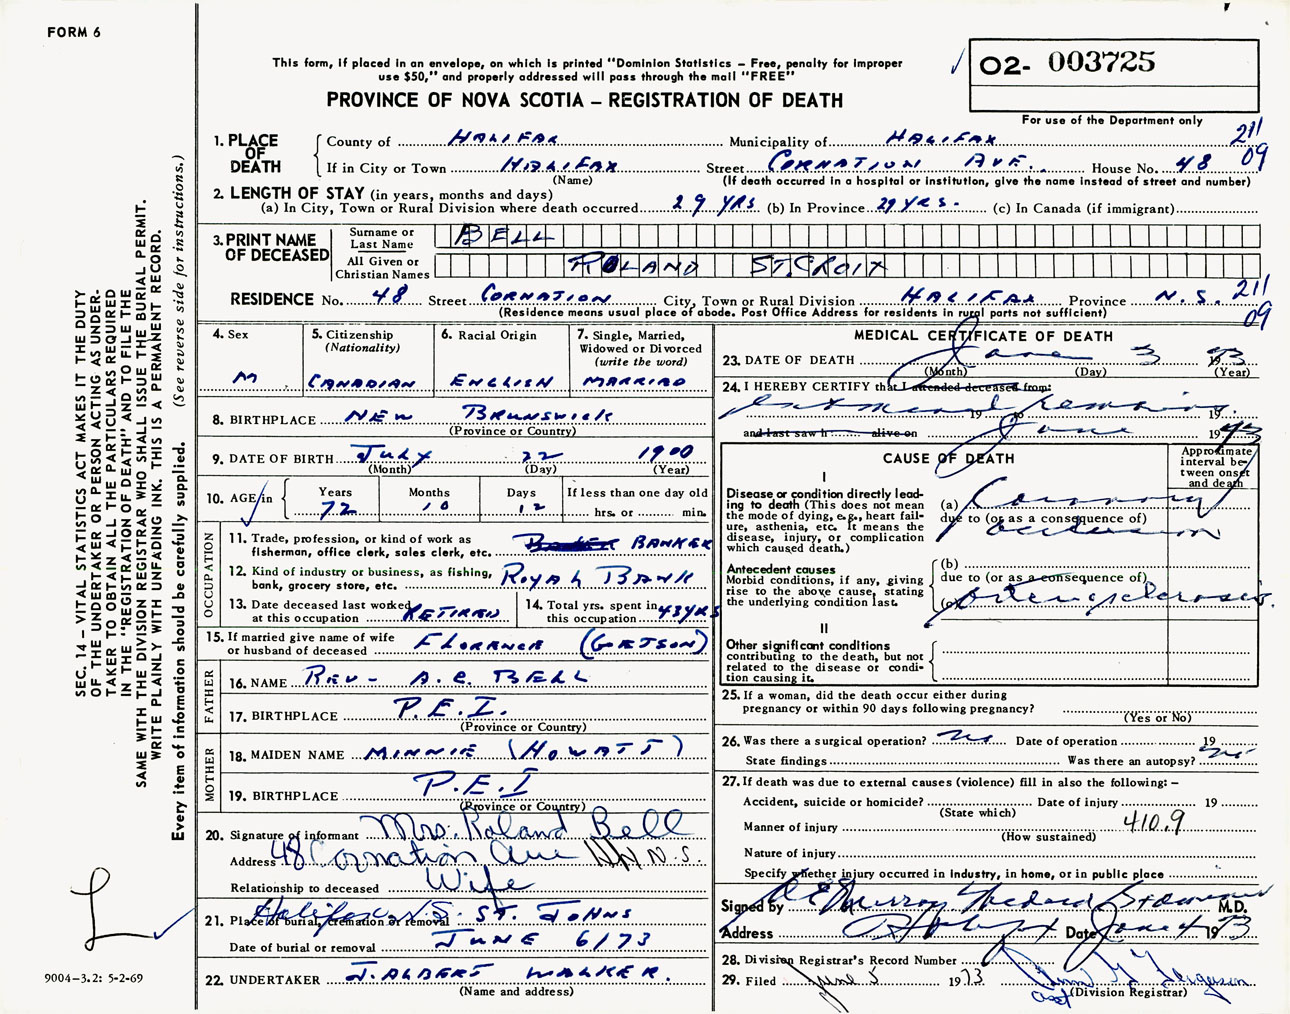 FORM 6
This form, if placed in an envelope, on which is printed "Dominion Statistics – Free, penalty for improper
use $50," and properly addressed will pass through the mail "FREE"
PROVINCE OF NOVA SCOTIA – REGISTRATION OF DEATH
O2- 003725
For use of the Department only
211
09
1. PLACE OF DEATH
County of HALIFAX Municipality of HALIFAX
If in City or Town HALIFAX Street CORNATION AVE. House No. 48
(Name) (If death occurred in a hospital or institution, give the name instead of street and number)
2. LENGTH OF STAY (in years, months and days)
(a) In City, Town or Rural Division where death occurred 29 YRS (b) In Province 29 YRS. (c) In Canada (if immigrant)
3. PRINT NAME OF DECEASED
Surname or Last Name BELL
All Given or Christian Names ROLAND ST.CROIX
RESIDENCE No. 48 Street CORNATION City, Town or Rural Division HALIFAX Province N.S. 211
(Residence means usual place of abode. Post Office Address for residents in rural parts not sufficient) 09
4. Sex 5. Citizenship (Nationality) 6. Racial Origin 7. Single, Married, Widowed or Divorced (write the word)
M CANADIAN ENGLISH MARRIED
8. BIRTHPLACE NEW BRUNSWICK
(Province or Country)
9. DATE OF BIRTH JULY 22 1900
(Month) (Day) (Year)
10. AGE in Years Months Days If less than one day old
72 10 12 hrs. or min.
OCCUPATION
11. Trade, profession, or kind of work as
fisherman, office clerk, sales clerk, etc. BANKER
12. Kind of industry or business, as fishing,
bank, grocery store, etc. ROYAL BANK
13. Date deceased last worked
at this occupation RETIRED
14. Total yrs. spent in
this occupation 43 YRS
15. If married give name of wife
or husband of deceased FLORENCE (GETSON)
FATHER
16. NAME REV- A.C. BELL
17. BIRTHPLACE P.E.I.
(Province or Country)
MOTHER
18. MAIDEN NAME MINNIE (HOWATT)
19. BIRTHPLACE P.E.I
(Province or Country)
20. Signature of informant Mrs. Roland Bell
Address 48 Cornation Ave N.S.
Relationship to deceased Wife
21. Place of burial, cremation or removal Halifax N.S. ST. JOHNS
Date of burial or removal JUNE 6/73
22. UNDERTAKER J. ALBERT WALKER.
(Name and address)
MEDICAL CERTIFICATE OF DEATH
23. DATE OF DEATH June 3 1973
(Month) (Day) (Year)
24. I HEREBY CERTIFY that I attended deceased from:
19 to 19
and last saw h alive on June 1973
CAUSE OF DEATH
Approximate interval between onset and death
I
Disease or condition directly leading
to death (This does not mean
the mode of dying, e.g., heart failure,
asthenia, etc. It means the
disease, injury, or complication
which caused death.)
(a) Coronary
due to (or as a consequence of)
occlusion
Antecedent causes
Morbid conditions, if any, giving
rise to the above cause, stating
the underlying condition last.
(b)
due to (or as a consequence of)
(c) arteriosclerosis.
II
Other significant conditions
contributing to the death, but not
related to the disease or condition
causing it.
25. If a woman, did the death occur either during
pregnancy or within 90 days following pregnancy?
(Yes or No)
26. Was there a surgical operation? no Date of operation 19
State findings Was there an autopsy? no
27. If death was due to external causes (violence) fill in also the following: –
Accident, suicide or homicide? Date of injury 19
(State which)
Manner of injury 410.9
(How sustained)
Nature of injury
Specify whether injury occurred in industry, in home, or in public place
Signed by Murray Medical Examiner M.D.
Address Halifax Date June 4 1973
28. Division Registrar's Record Number
29. Filed June 5 1973 Ferguson
(Division Registrar)
SEC. 14 – VITAL STATISTICS ACT MAKES IT THE DUTY
OF THE UNDERTAKER OR PERSON ACTING AS UNDER-
TAKER TO OBTAIN ALL THE PARTICULARS REQUIRED
IN THE "REGISTRATION OF DEATH" AND TO FILE THE
SAME WITH THE DIVISION REGISTRAR WHO SHALL ISSUE THE BURIAL PERMIT.
WRITE PLAINLY WITH UNFADING INK. THIS IS A PERMANENT RECORD.
Every item of information should be carefully supplied. (See reverse side for instructions.)
L
9004–3.2: 5-2-69